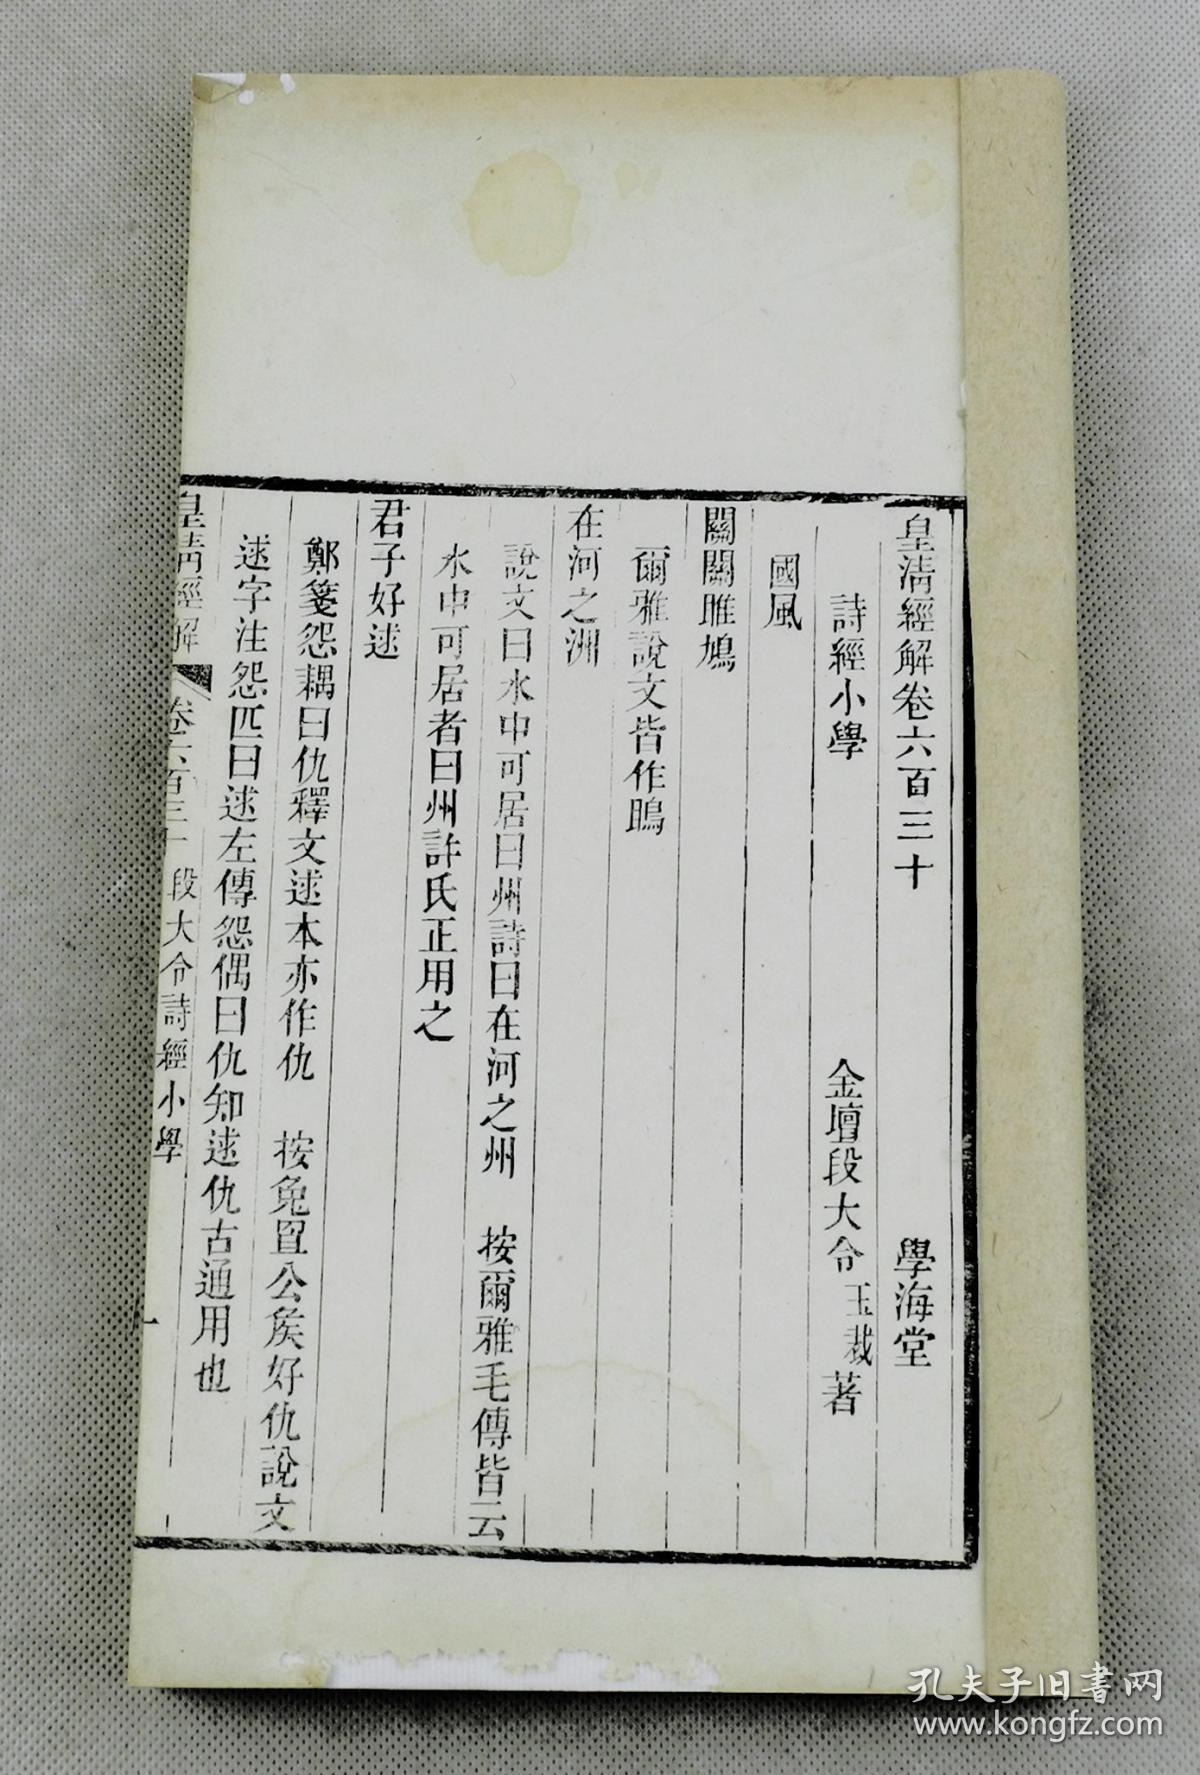 皇清經解卷六百三十 學海堂
詩經小學 金壇段大令玉裁著
國風
關關雎鳩
爾雅說文皆作鴡
在河之洲
說文曰水中可居曰州詩曰在河之州 按爾雅毛傳皆云
水中可居者曰州許氏正用之
君子好逑
鄭箋怨耦曰仇釋文逑本亦作仇 按兔罝公矦好仇說文
逑字注怨匹曰逑左傳怨偶曰仇知逑仇古通用也
皇清經解 卷六百三十 段大令詩經小學 一
孔夫子旧書网
www.kongfz.com